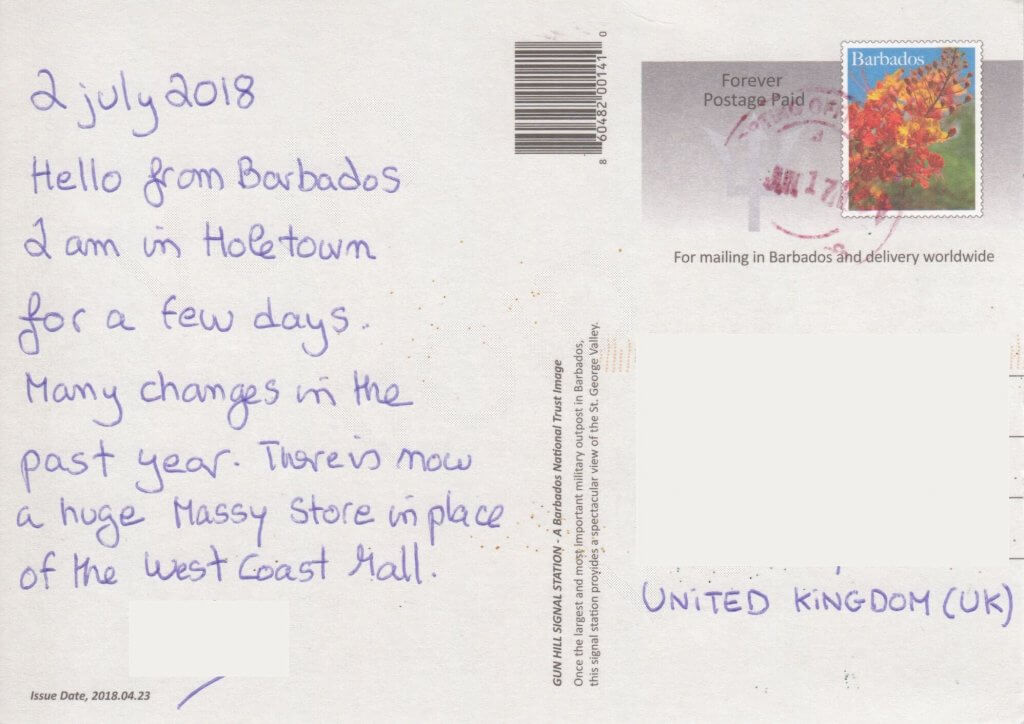 2 july 2018
Hello from Barbados
I am in Holetown
for a few days.
Many changes in the
past year. There is now
a huge Massy Store in place
of the West Coast Mall.
Issue Date, 2018.04.23
8 60482 00141 0
GUN HILL SIGNAL STATION - A Barbados National Trust Image
Once the largest and most important military outpost in Barbados,
this signal station provides a spectacular view of the St. George Valley.
Forever
Postage Paid
Barbados
For mailing in Barbados and delivery worldwide
UNITED KINGDOM (UK)